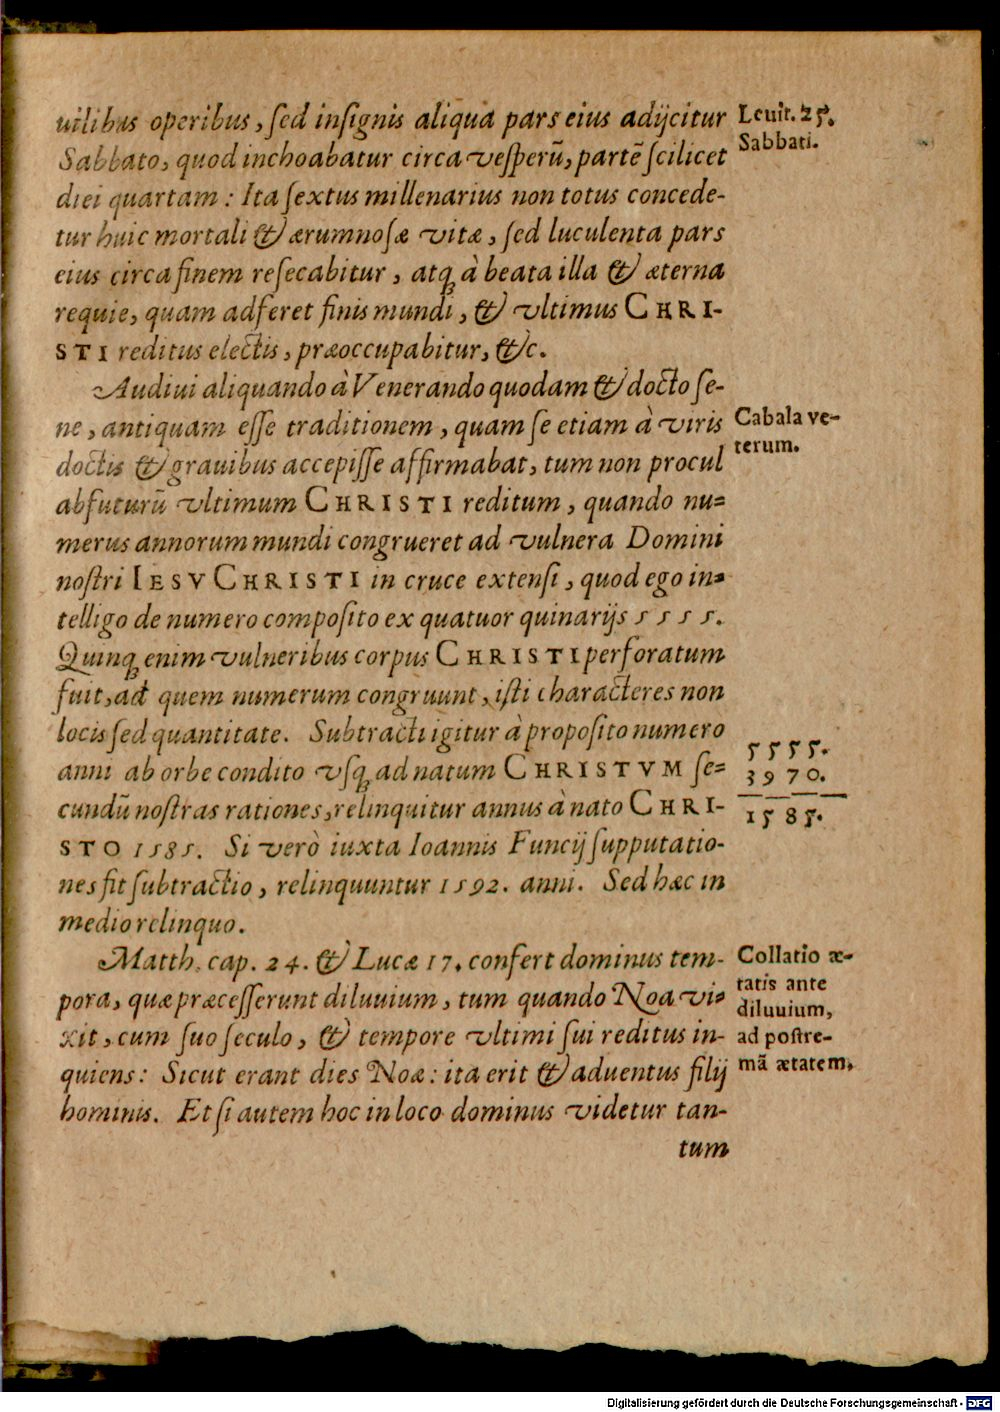 uilibus operibus, sed insignis aliqua pars eius adijcitur
Sabbato, quod inchoabatur circa vesperū, partē scilicet
diei quartam: Ita sextus millenarius non totus concede-
tur huic mortali & ærumnosæ vitæ, sed luculenta pars
eius circa finem resecabitur, atq̃ à beata illa & æterna
requie, quam adferet finis mundi, & vltimus CHRI-
STI reditus electis, præoccupabitur, &c.
Leuit. 25.
Sabbati.
Audiui aliquando à Venerando quodam & docto se-
ne, antiquam esse traditionem, quam se etiam à viris
doctis & grauibus accepisse affirmabat, tum non procul
abfuturū vltimum CHRISTI reditum, quando nu-
merus annorum mundi congrueret ad vulnera Domini
nostri IESV CHRISTI in cruce extensi, quod ego in-
telligo de numero composito ex quatuor quinarijs 5555.
Quinq̃ enim vulneribus corpus CHRISTI perforatum
fuit, ad quem numerum congruunt, isti characteres non
locis sed quantitate. Subtracti igitur à proposito numero
anni ab orbe condito vsq̃ ad natum CHRISTVM se-
cundū nostras rationes, relinquitur annus à nato CHRI-
STO 1585. Si verò iuxta Ioannis Funcij supputatio-
nes fit subtractio, relinquuntur 1592. anni. Sed hæc in
medio relinquo.
Cabala ve-
terum.
5555.
3970.
1585.
Matth. cap. 24. & Lucæ 17. confert dominus tem-
pora, quæ præcesserunt diluuium, tum quando Noa vi-
xit, cum suo seculo, & tempore vltimi sui reditus in-
quiens: Sicut erant dies Noæ: ita erit & aduentus filij
hominis. Etsi autem hoc in loco dominus videtur tan-
tum
Collatio æ-
tatis ante
diluuium,
ad postre-
mā ætatem.
Digitalisierung gefördert durch die Deutsche Forschungsgemeinschaft - DFG